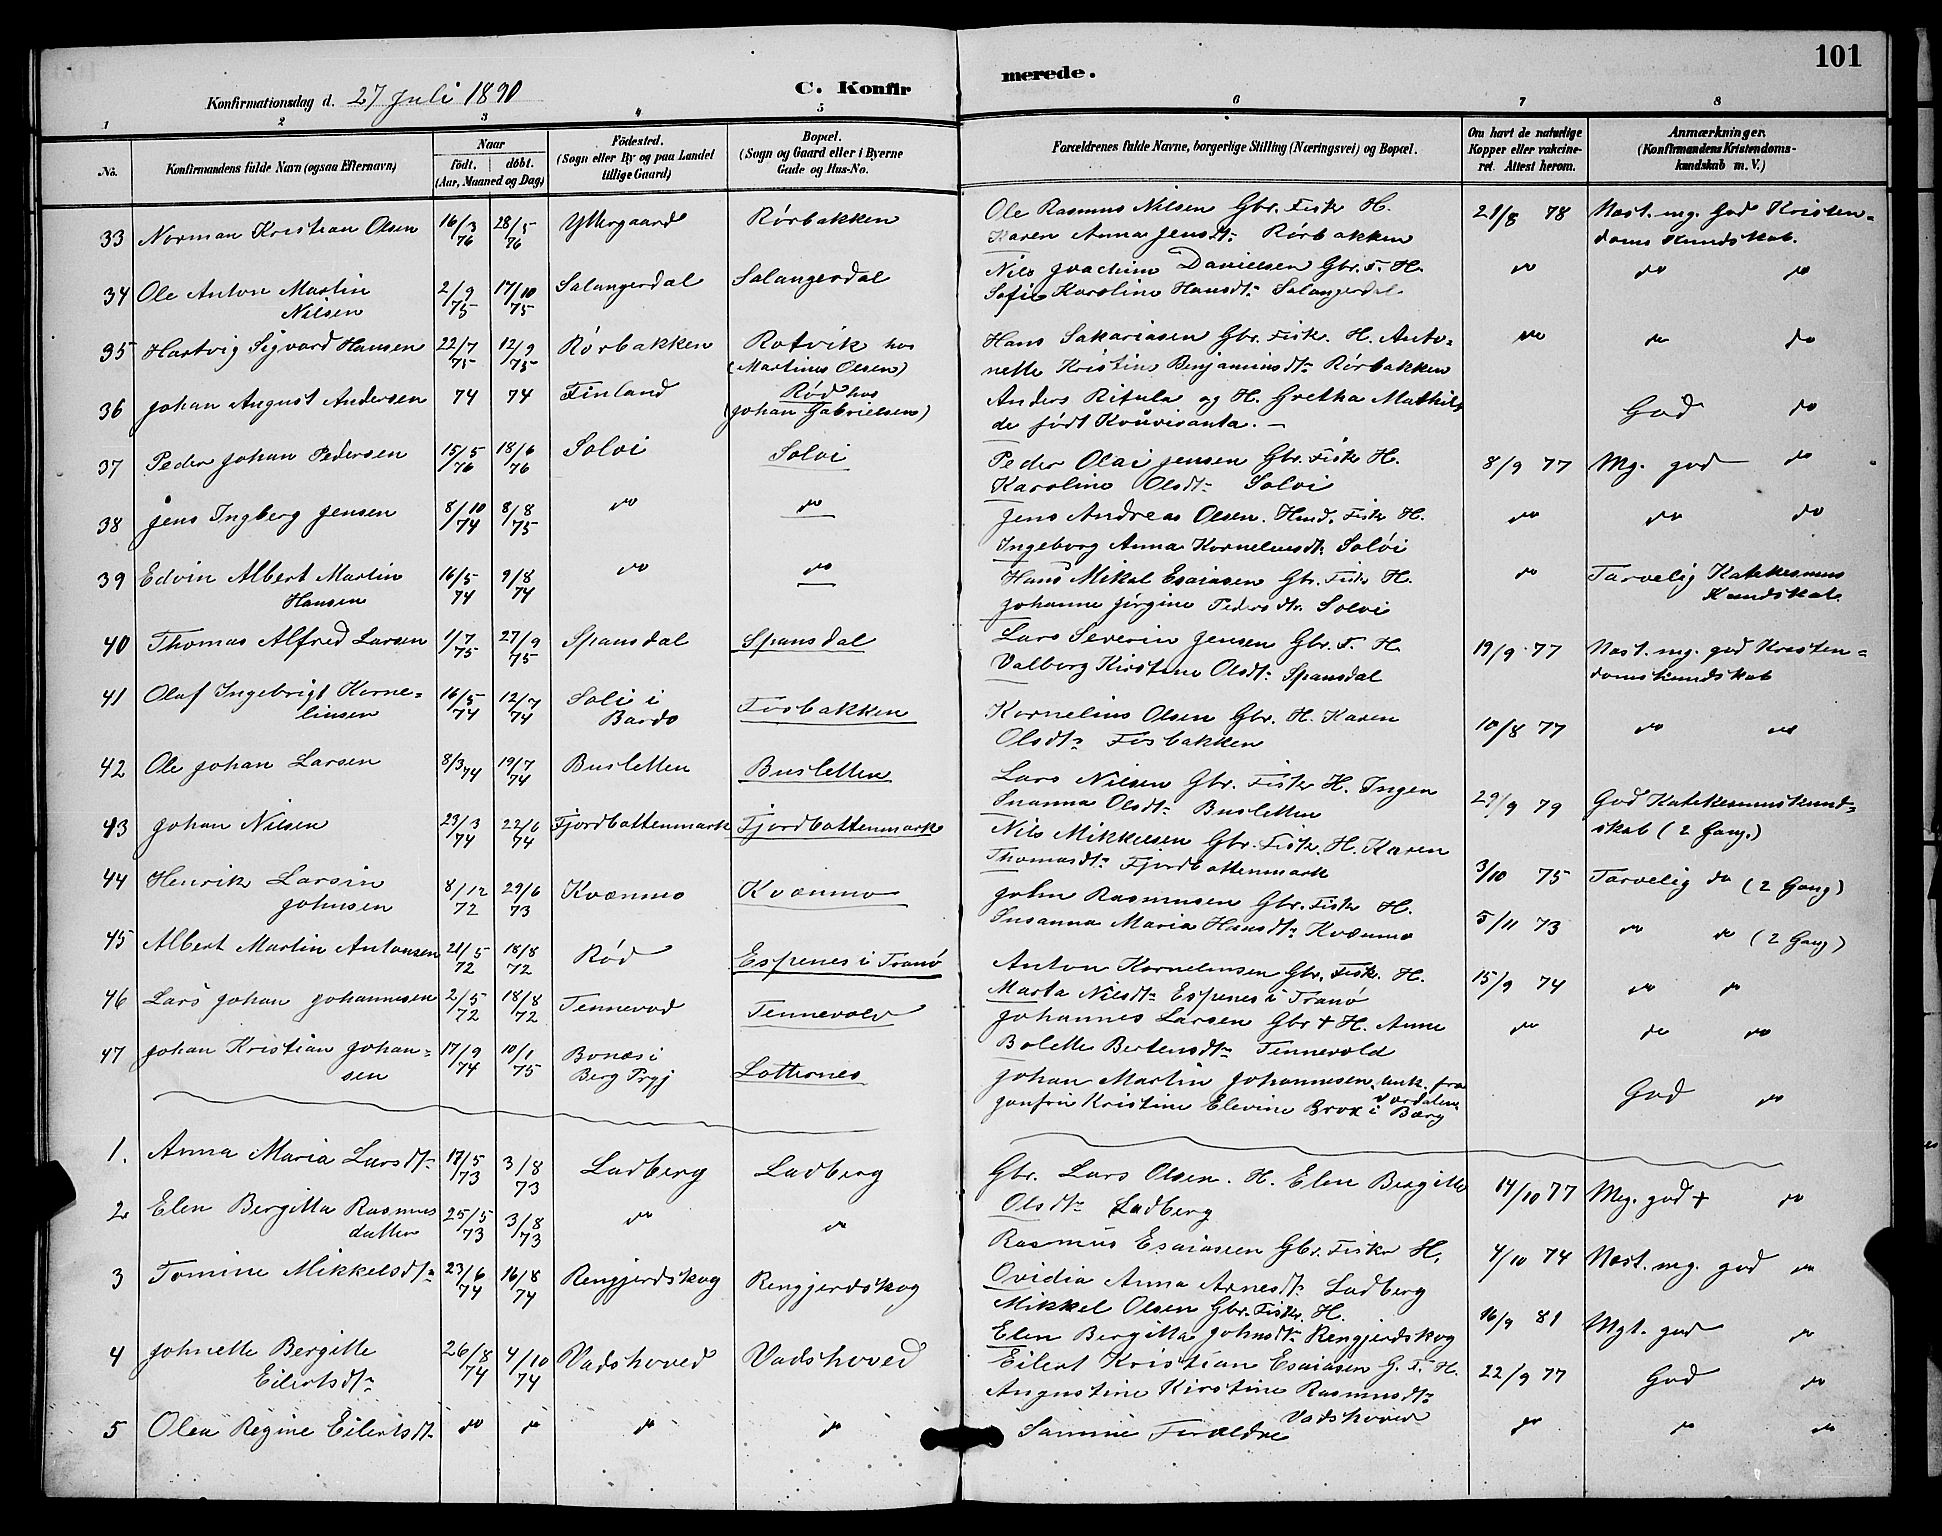 101
Konfirmationsdag d. 27 Juli 1890
C. Konfirmerede.
1 2 3 4 5 6 7 8
No. Konfirmandens fulde Navn (ogsaa Efternavn) Naar födt. döbt. (Aar, Maaned og Dag) Födested. (Sogn eller By og paa Landet tillige Gaard) Bopæl. (Sogn og Gaard eller i Byerne Gade og Hus-No. Forældrenes fulde Navne, borgerlige Stilling (Næringsvei) og Bopæl. Om havt de naturlige Kopper eller vakcineret. Attest herom. Anmærkninger. (Konfirmandens Kristendomskundskab m. V.)
33 Norman Kristian Olsen 16/3 76 28/5 76 Yttergaard Rørbakken Ole Rasmus Nilsen Gbr. Fisk H. 21/8 78 Næst. mg. God Kristen-
Karen Anna Jensdtr Rørbakken doms Kundskab.
34 Ole Anton Martin 2/9 75 17/10 75 Salangerdal Salangerdal Nils Joachim Danielsen Gbr. F. H. do do do
Nilsen Sofie Karoline Hansdtr Salangerdal
35 Hartvig Sigvard Hansen 22/7 75 12/9 75 Rørbakken Rotvik hos Hans Sakariasen Gbr. Fisk. H. Anto- do do do
(Martines Olsen) nette Kristine Benjaminsdtr Rørbakken
36 Johan August Andersen 74 74 Finland Rød hos Anders Ritula og H. Gretha Mathil God do
(Johan Gabrielsen) de født Kouvisanta. -
37 Peder Johan Pedersen 15/5 76 18/6 76 Solvi Solvi Peder Olai Jensen Gbr. Fisk H. 8/9 77 Mg. god do
Karoline Olsdtr Solvi
38 Jens Ingberg Jensen 8/10 74 8/8 75 do do Jens Andreas Olsen. Hmd. Fisk H. do do do
Ingeborg Anna Korneliusdtr Solvi
39 Edvin Albert Martin 16/5 74 9/8 74 do do Hans Mikal Esaiasen Gbr. Fisk H. do Tarvelig Katekesmus
Hansen Johanna Jørgine Pedersdtr Solvi Kundskab.
40 Thomas Alfred Larsen 1/7 75 27/9 75 Spansdal Spansdal Lars Severin Jensen Gbr. F. H. 19/9 77 Næst. mg. god Kristen-
Valborg Kirstine Olsdtr Spansdal domskundskab
41 Olaf Ingebrigt Korne- 16/5 74 12/7 74 Soli i Fosbakken Kornelius Olsen Gbr. H. Karen 10/8 77 do do
liusen Bardo Olsdtr Fosbakken
42 Ole Johan Larsen 8/3 74 19/7 74 Busletten Busletten Lars Nilsen Gbr. Fisk H. Ingen 29/9 79 God Katekesmuskund-
Susanna Olsdtr Busletten skab (2 Gang.)
43 Johan Nilsen 23/3 74 22/6 74 Fjordbottenmark Fjordbottenmark Nils Mikkelsen Gbr. Fisk. H. Karen 3/10 75 Tarvelig do (2 Gang)
Thomasdtr Fjordbottenmark
44 Henrik Larsin 8/12 72 29/6 73 Kvænmo Kvænmo John Rasmusen Gbr. Fisk H. 5/11 73 do do (2 Gang)
Johnsen Susanna Maria Hansdtr Kvænmo
45 Albert Martin Antonsen 21/5 72 18/8 72 Rød Espenes i Tranø Anton Korneliusen Gbr. Fisk. H. 15/9 74 do do
Marta Nilsdtr Espenes i Tranø
46 Lars Johan Johannesen 2/5 72 18/8 72 Tennevod Tennevold Johannes Larsen Gbr + H. Anne do do do
Bolette Bertensdtr Tennevold
47 Johan Kristian Johan- 17/9 74 10/1 75 Bonæs i Lotternes Johan Martin Johannesen, unk. fra Værdalen God do
sen Berg Prgj Jomfru Kristine Elevine Brox i Bærg
1. Anna Maria Larsdtr 17/5 73 3/8 73 Ladberg Ladberg Gbr. Lars Olsen. H. Elen Bergitte 14/10 77 Mg. god + do
Olsdtr Ladberg
2 Elen Bergitta Rasmus 25/5 73 3/8 73 do do Rasmus Esaiasen Gbr. Fisker H. 4/10 74 Næst. mg. god do
datter Ovidia Anna Arnesdtr Ladberg
3 Tomine Mikkelsdtr 23/6 74 16/8 74 Rengjerdskog Rengjerdskog Mikkel Olsen Gbr. Fisker. H. 16/9 81 Mgt. god do
Elen Bergitta Johnsdtr Rengjerdskog
4 Johnette Bergitte 26/8 74 4/10 74 Vadshoved Vadshoved Eilert Kristian Esaiasen G. F. H. 22/9 77 God do
Eilertsdtr Augustine Kirstine Rasmusdtr
Vadshoved
5 Olea Regine Eilertsdtr do do do do Samme Forældre do do do